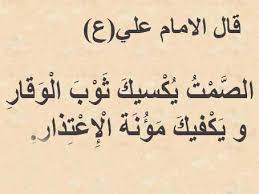 قال الامام علي(ع)
الصَّمْتُ يُكْسيكَ ثَوْبَ الْوَقارِ
و يَكْفيكَ مَؤُنَة الْإعْتِذار.